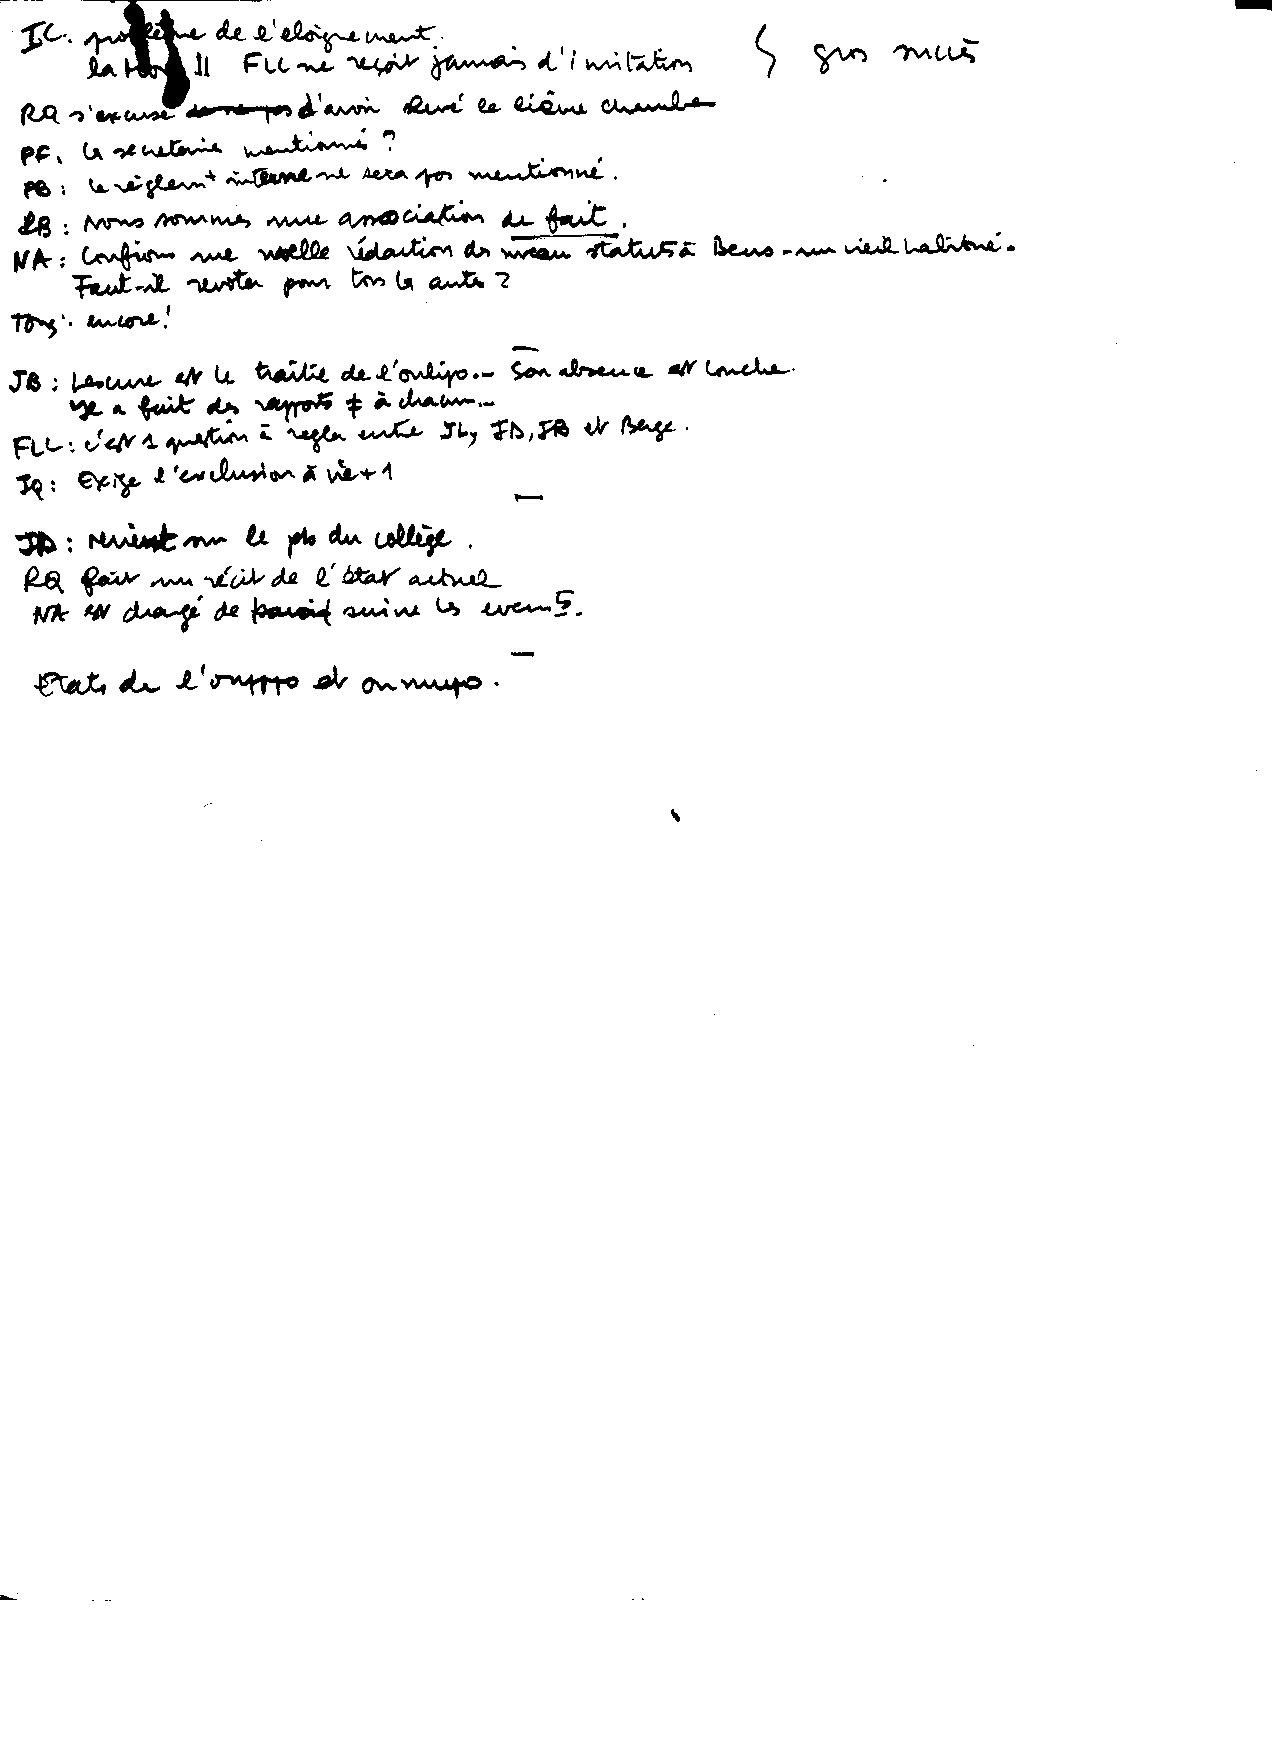 IC. problème de l'eloignement.
la FLL ne reçoit jamais d'invitation gros
RQ s'excuse d'avoir levé le lièvre
PF. le secretaire mentionné ?
PB : le règlemt interne ne sera pas mentionné.
RB : Nous sommes une association de fait.
NA : Confions une nvelle rédaction des nveau statuts à Bens - un vieil habitué.
Faut-il revoter pour tous les autres ?
Tous : encore !
JB : Lescure est le traître de l'oulipo.. Son absence est louche.
Il a fait des rapports ≠ à chacun...
FLL : c'est 1 question à regler entre JL, JD, JB et Berge.
JQ : Exige l'exclusion à vie + 1
JD : revient sur le pb du collège.
RQ fait un récit de l'état actuel
NA est chargé de suivre les evemts.
Etats de l' et